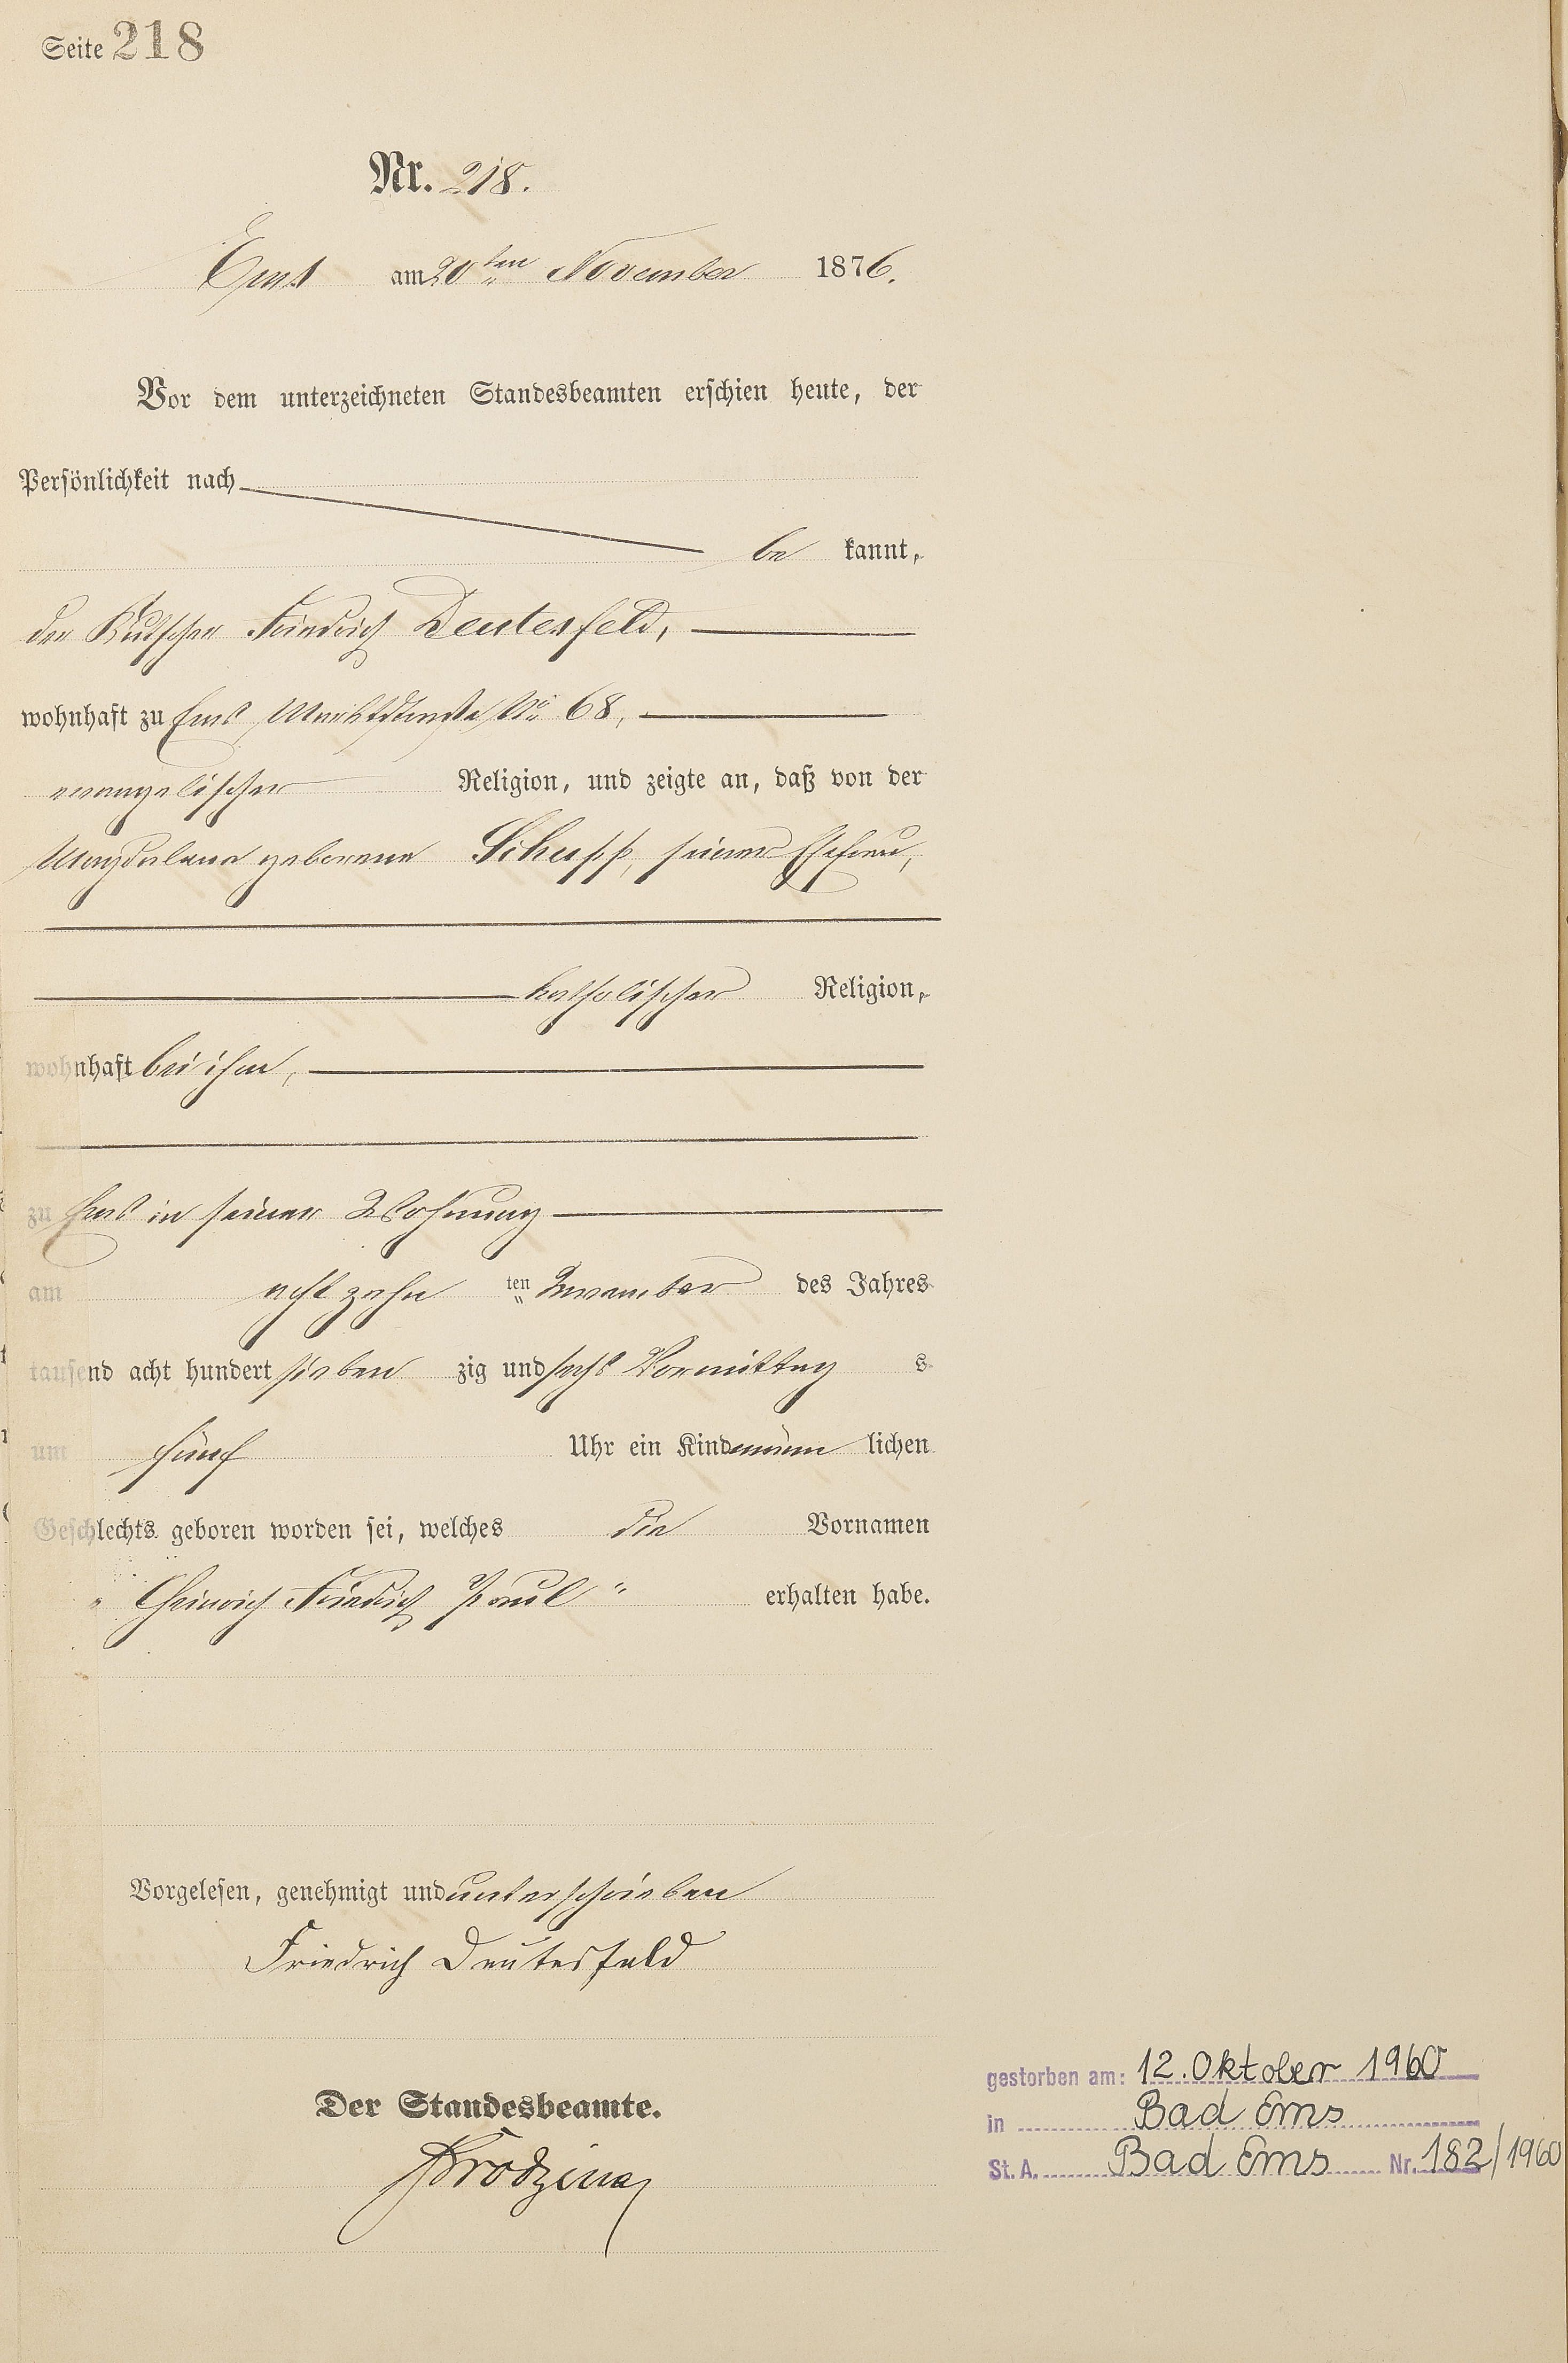 Seite 218
Nr. 218.
Ems am 20ten November 1876.
Vor dem unterzeichneten Standesbeamten erschien heute, der
Persönlichkeit nach
be kannt,
der Kutscher Friedrich Deutesfeld,
wohnhaft zu Ems, Marktstraße No 68,
evangelischer Religion, und zeigte an, daß von der
Magdalena geborene Schupp, seiner Ehefrau,
katholischer Religion,
wohnhaft bei ihm,
zu Ems in seiner Wohnung
am acht zehn ten November des Jahres
tausend acht hundert sieben zig und sechs Vormittag s
um fünf Uhr ein Kind männ lichen
Geschlechts geboren worden sei, welches die Vornamen
"Heinrich Friedrich Paul" erhalten habe.
Vorgelesen, genehmigt und unterschrieben
Friedrich Deutesfeld
Der Standesbeamte.
gestorben am: 12. Oktober 1960
in Bad Ems
St. A. Bad Ems Nr. 182/1960